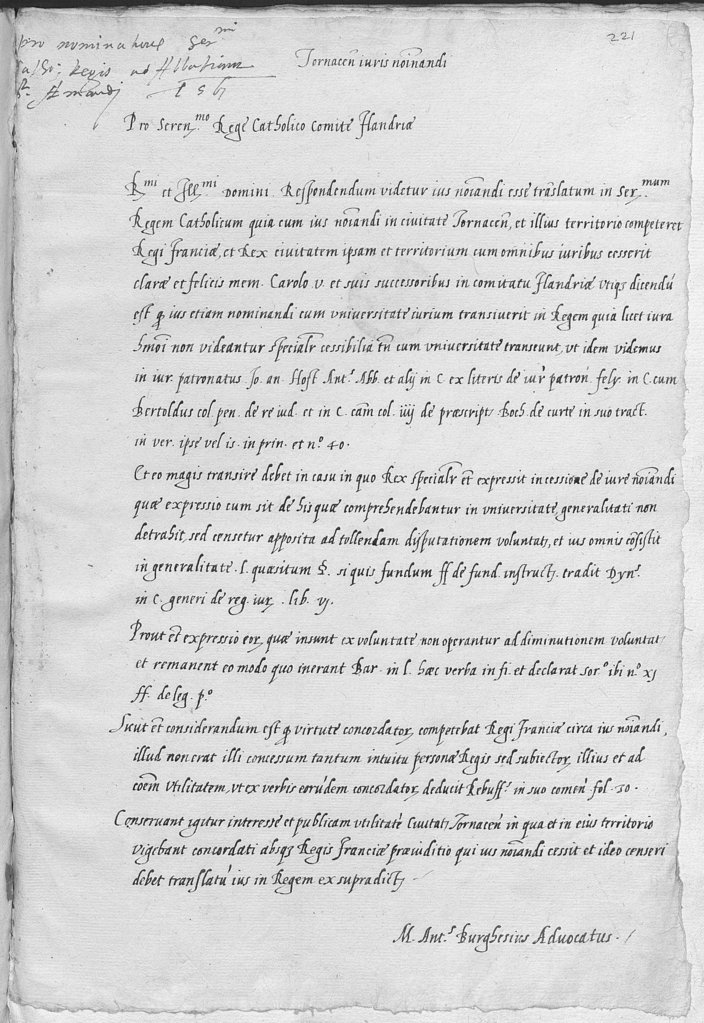 221
pro nominatione Ser.mi
Cathci Regis ad Abbatiam
S. Amandi
Tornacen̄ iuris noīnandi
Pro Seren.mo Rege Catholico Comite Flandriæ
R.mi et Ill.mi Domini. Respondendum videtur ius noīandi esse trāslatum in Ser.mum
Regem Catholicum quia cum ius noīandi in civitate Tornacen̄, et illius territorio competeret
Regi Franciæ, et Rex civitatem ipsam et territorium cum omnibus iuribus cesserit
claræ et felicis mem. Carolo v. et suis successoribus in comitatu Flandriæ vtiqȝ dicendū
est ꝙ ius etiam nominandi cum vniversitate iurium transiverit in Regem quia licet iura
hmōi non videantur specialr̄ cessibilia tn̄ cum vniversitate transeunt, vt idem videmus
in iur. patronatus. Jo. an. Host. Ant.s Abb. et alij in C. ex literis de iur̄ patron̄. fely. in C. cum
Bertoldus col. pen. de re iud. et in C. cām col. iiij de præscript. Boch. de curte in suo tract.
in ver. ipse vel is. in prin. et n.o 40.
Et eo magis transire debet in casu in quo Rex specialr̄ et̄ expressit in cessione de iure noīandi
quæ expressio cum sit de his quæ comprehendebantur in vniversitate, generalitati non
detrahit, sed censetur apposita ad tollendam disputationem voluntat., et ius omnis cōsistit
in generalitate. l. quæsitum §. si quis fundum ff de fund. instruct. tradit Dyn.s
in C. generi de reg. iur. lib. vj.
Prout et̄ expressio eor., quæ insunt ex voluntate, non operantur ad diminutionem voluntat.
et remanent eo modo quo inerant Bar. in l. hæc verba in fi. et declarat soc.o ibi n.o xj
ff. de leg. p.o
Sicut et̄ considerandum est ꝙ virtute concordator. competebat Regi Franciæ circa ius noīandi,
illud non erat illi concessum tantum intuitu personæ Regis sed subiector. illius et ad
cōem vtilitatem, vt ex verbis eorūdem concordator. deducit Rebuff.s in suo comen̄. fol. 30.
Conservant igitur interesse et publicam vtilitatē Civitat. Tornacen̄ in qua et in eius territorio
vigebant concordati absqȝ Regis Franciæ præiuditio qui ius noīandi cessit et ideo censeri
debet translatū ius in Regem ex supradict.
M. Ant.s Burghesius Advocatus.